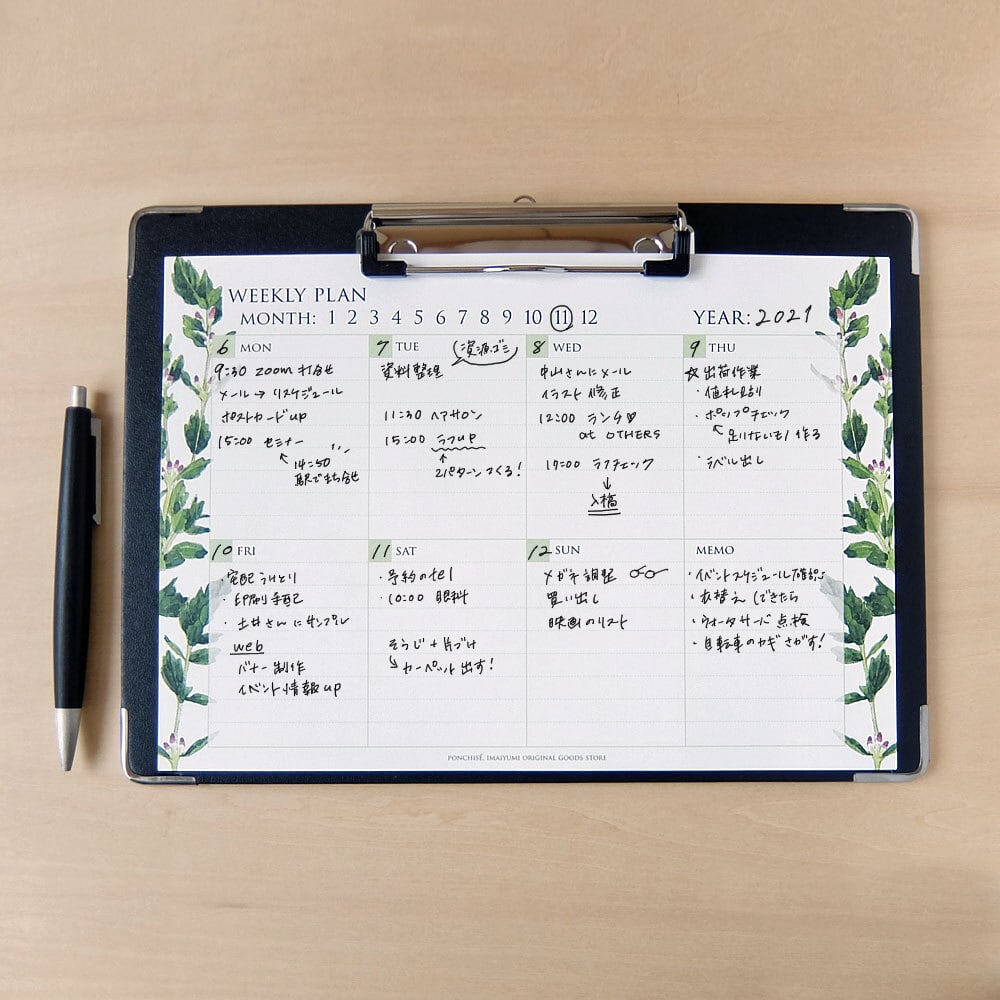 WEEKLY PLAN
MONTH: 1 2 3 4 5 6 7 8 9 10 11 12
YEAR: 2021
6 MON
9:30 zoom 打合せ
メール→リスケジュール
ポストカードup
15:00 セミナー
↖ 14:50
駅で待ち合せ
7 TUE (資源ゴミ)
資料整理
11:30 ヘアサロン
15:00 ラフup
↑
2パターンつくる!
8 WED
中山さんにメール
イラスト修正
12:00 ランチ♡
at OTHERS
17:00 ラフチェック
↓
入稿
9 THU
☆出荷作業
・値札貼り
・ポップチェック
↖ 足りないもの作る
・ラベル出し
10 FRI
・宅配うけとり
・印刷手配
・土井さんにサンプル
web
バナー制作
イベント情報up
11 SAT
・予約のtel
・10:00 眼科
そうじ+片づけ
↳カーペット出す!
12 SUN
メガネ調整
買い出し
映画のリスト
MEMO
・イベントスケジュール確認
・衣替え(できたら
・ウォータサーバ点検
・自転車のカギさがす!
PONCHISÉ, IMAIYUMI ORIGINAL GOODS STORE